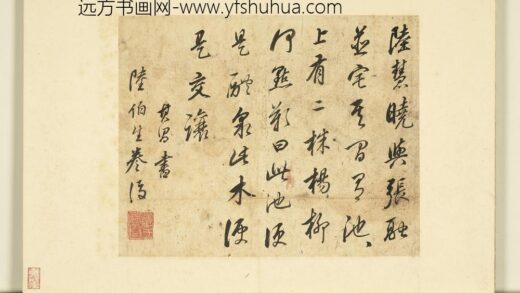 远方书画网-www.yfshuhua.com
陸慧曉與張融
並宅其間有池、
上有二株楊柳
何點歎曰此池便
是醴泉此木便
是交讓
其昌書
陸伯生卷後